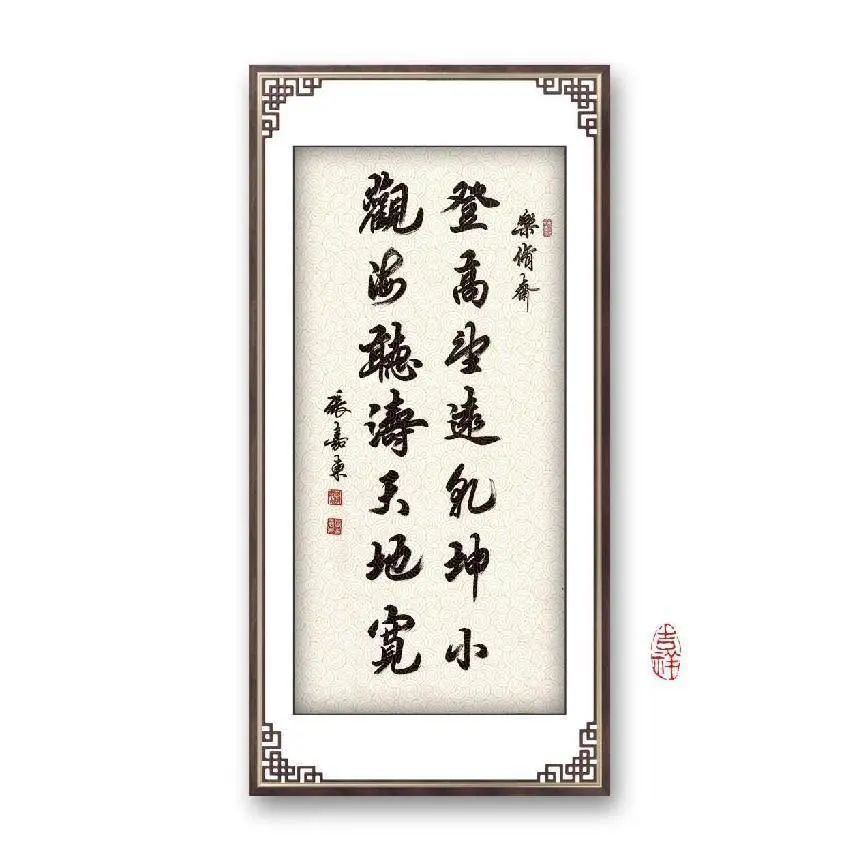 樂脩齋
登高望遠乾坤小
觀海聽濤天地寬
張嘉東
吉祥